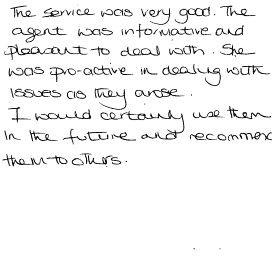 The service was very good. The
agent was informative and
pleasant to deal with. She
was pro-active in dealing with
issues as they arose.
I would certainly use them
in the future and recommend
them to others.